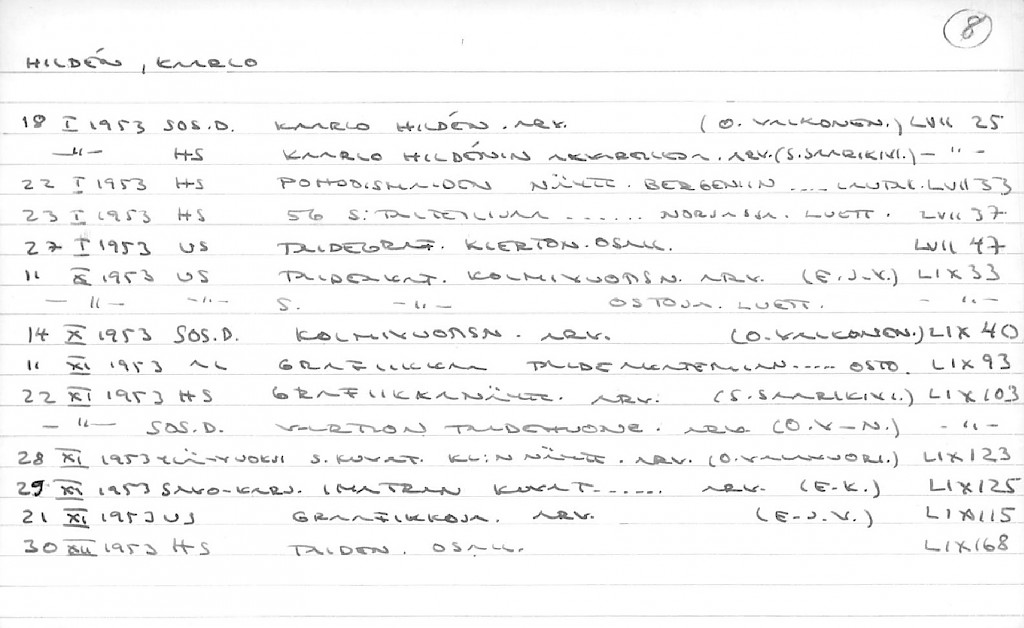 8
HILDÉN, KAARLO
18 I 1953 SOS.D. KAARLO HILDÉN. ARV. (O. VALKONEN.) LVII 25
—"— HS KAARLO HILDÉNIN AKVARELLEJA. ARV. (S. SAARIKIVI.) —"—
22 I 1953 HS POHJOISMAIDEN NÄYTT. BERGENIIN .... LVII 33
23 I 1953 HS 56 S: TAITEILIJAA ...... NORJASSA. LUETT. LVII 37
27 I 1953 US TAIDEGRAF. KLERTON. OSALL.
LVII 47
11 X 1953 US TAIDEAKAT. KOLMIVUOTISN. ARV. (E.J.V.) LIX 33
—"— —"— S. —"— OSTOJA. LUETT. —"—
14 X 1953 SOS.D. KOLMIVUOTISN. ARV. (O. VALKONEN.) LIX 40
11 XI 1953 AL GRAFIIKKAA TAIDEAKATEMIAN .... OSTO. LIX 93
22 XI 1953 HS GRAFIIKKANÄYTT. ARV. (S. SAARIKIVI.) LIX 103
—"— SOS.D. VALTION TAIDEHUONE. ARV. (O.V—N.) —"—
28 XI 1953 S. KUVAT. KL:N NÄYTT. ARV. (O. VALAVUORI.) LIX 123
29 XI 1953 SAVO-KARJ. IMATRAN KUVAT ...... ARV. (E-K.) LIX 125
21 XI 1953 US GRAAFIKKOJA. ARV. (E-J.V.) LIX 115
30 XII 1953 HS TAIDEN. OSALL. LIX 168